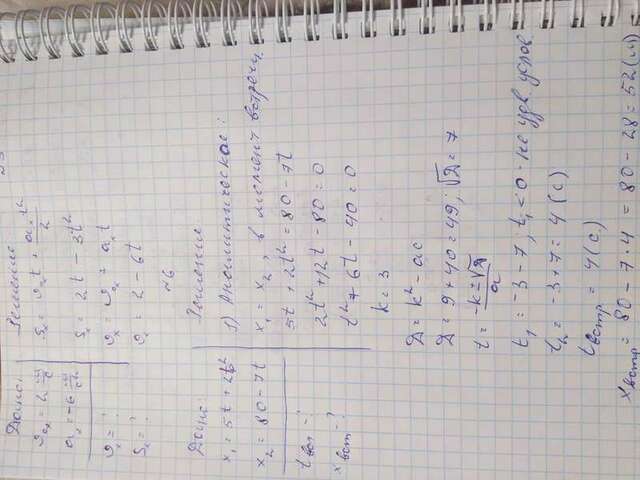 Дано:
υ₀ₓ = 2 м/с
aₓ = -6 м/с²
υₓ = ?
Sₓ = ?
Решение
Sₓ = υ₀ₓt + aₓt²/2
Sₓ = 2t - 3t²
υₓ = υ₀ₓ + aₓt
υₓ = 2 - 6t
№6
Дано:
x₁ = 5t + 2t²
x₂ = 80 - 7t
t вст - ?
x вст - ?
Решение
1) Аналитическое:
x₁ = x₂, в момент встречи
5t + 2t² = 80 - 7t
2t² + 12t - 80 = 0
t² + 6t - 40 = 0
k = 3
D = k² - ac
D = 9 + 40 = 49; √D = 7
t = -k ± √D / a
t₁ = -3 - 7; t₁ < 0 - не удв. услов.
t₂ = -3 + 7 = 4 (с)
t встр = 4 (с)
x встр = 80 - 7·4 = 80 - 28 = 52 (м)